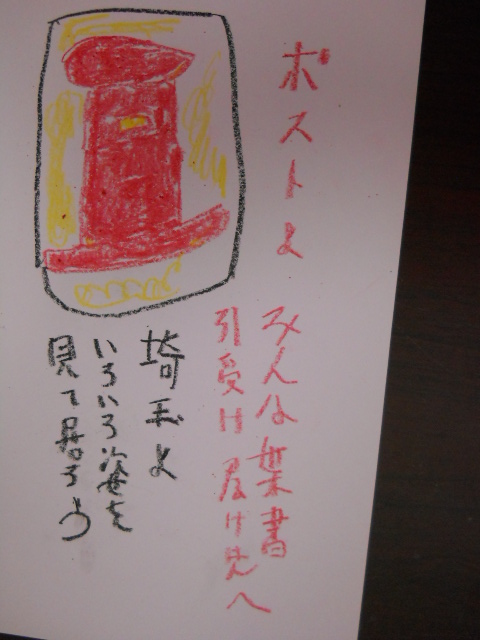 ポストよ
みんな葉書
引受け届け先へ
埼玉よ
いろいろ姿を
見て昇ろう